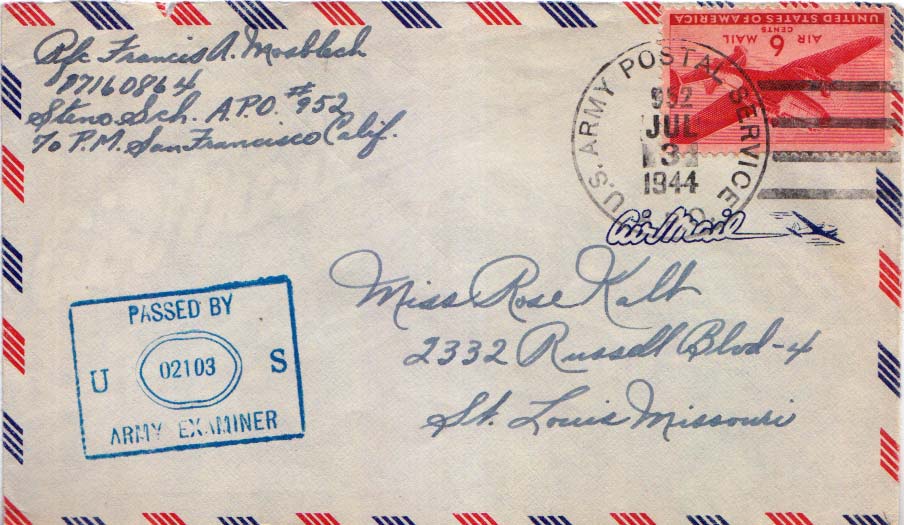 Pfc Francis A. Mosblech
37160864
Steno Sch. A.P.O. #952
℅ P.M. San Francisco Calif.
UNITED STATES OF AMERICA
AIR MAIL
6 CENTS
U.S. ARMY POSTAL SERVICE
952
JUL
3
1944
Air Mail
Miss Rose Kalt
2332 Russell Blvd-4
St. Louis Missouri
PASSED BY
U 02103 S
ARMY EXAMINER